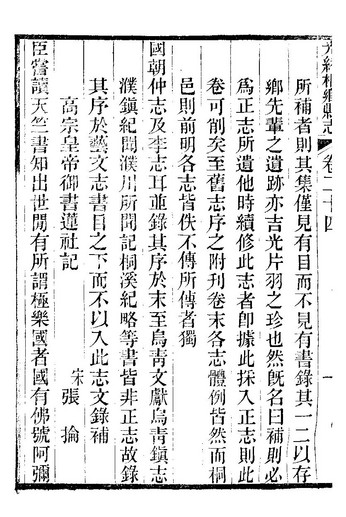 光緒桐鄉縣志 卷二十四 一
所補者則其集僅見有目而不見有書錄其一二以存
鄉先輩之遺跡亦吉光片羽之珍也然旣名曰補則必
爲正志所遺他時續修此志者卽據此採入正志則此
卷可削矣至舊志序之附刊卷末各志體例皆然而桐
邑則前明各志皆佚不傳所傳者獨
國朝仲志及李志耳並錄其序於末至烏靑文獻烏靑鎭志
濮鎭紀聞濮川所聞記桐溪紀略等書皆非正志故錄
其序於藝文志書目之下而不以入此志文錄補
高宗皇帝御書蓮社記
宋張掄
臣嘗讀天竺書知出世閒有所謂極樂國者國有佛號阿彌